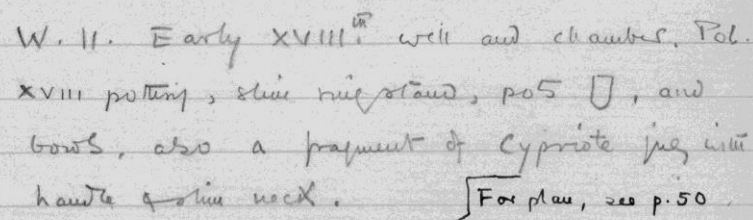 W. 11. Early XVIIIth. well and chamber. Pol.
XVIII pottery, slim ring stand, pot, and
bowls, also a fragment of Cypriote jug with
handle & slim neck. For plan, see p. 50